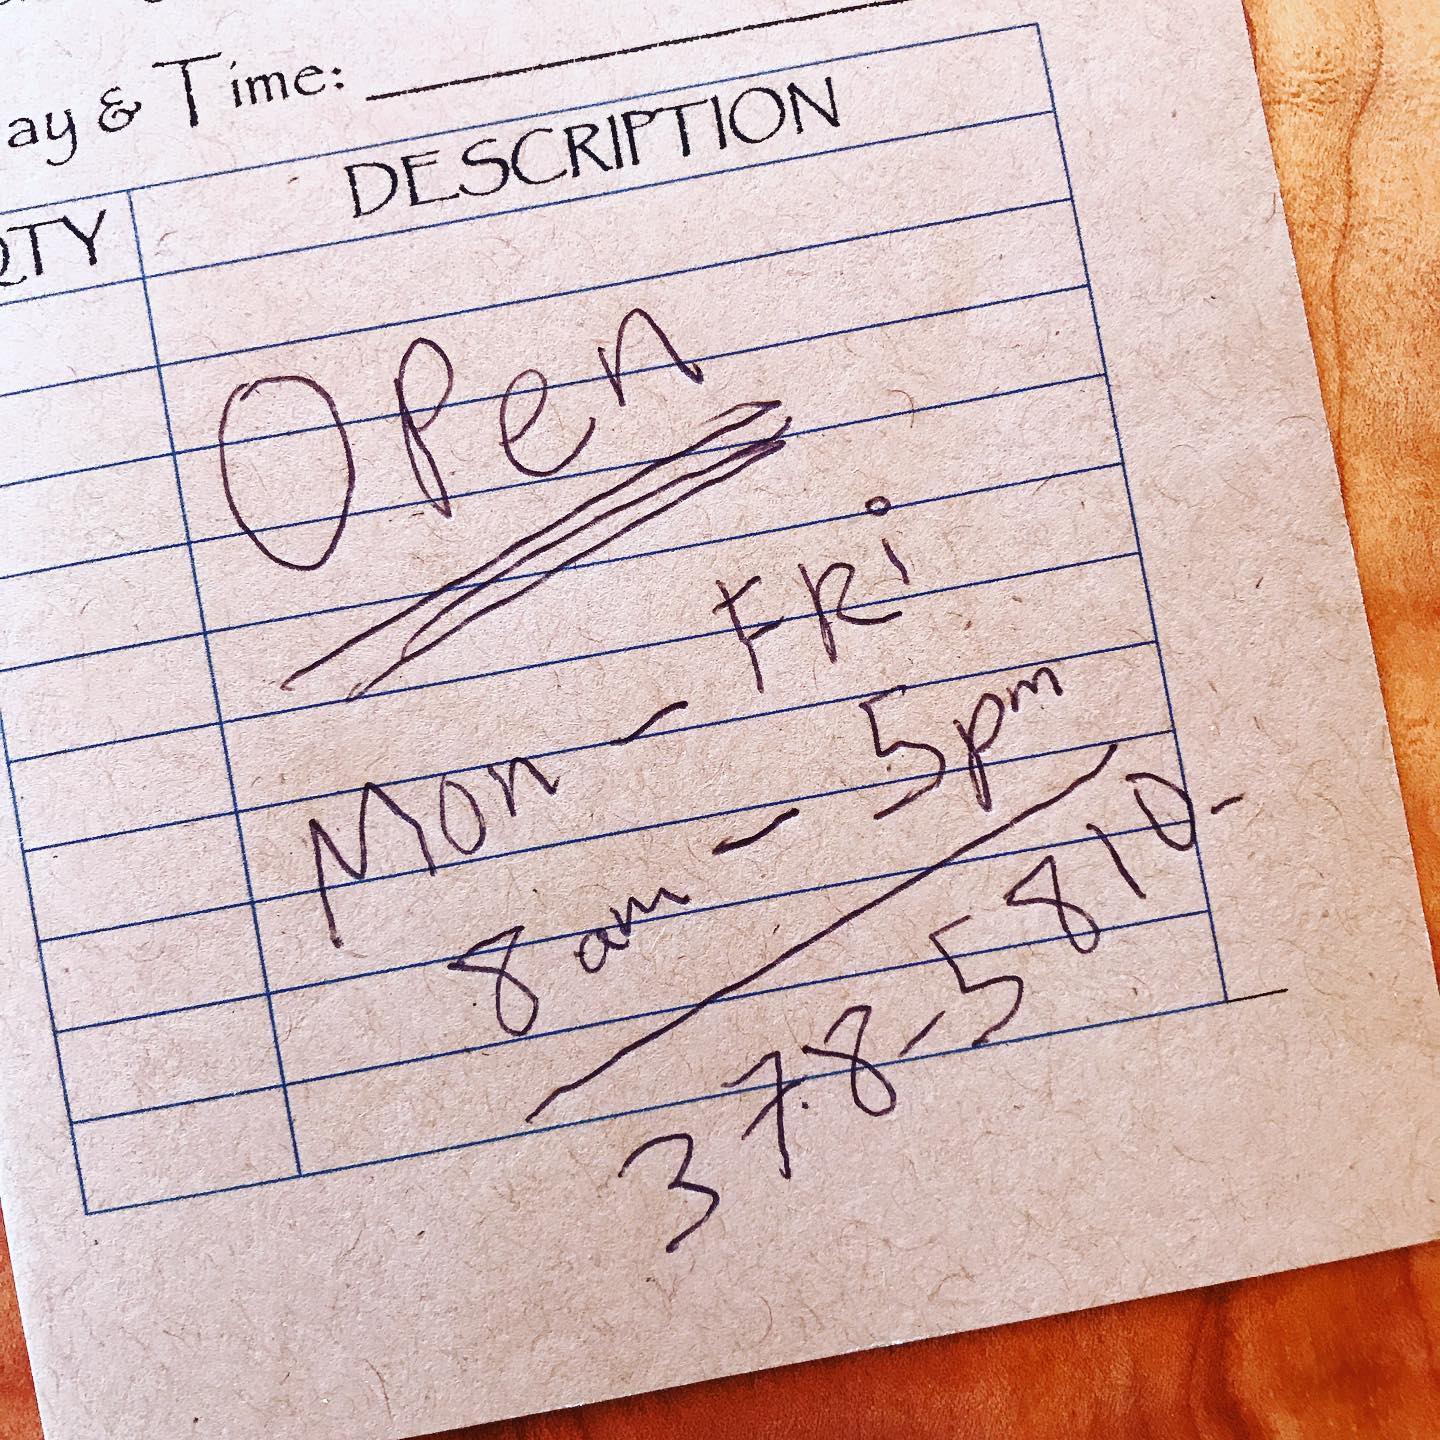 ay & Time:
QTY DESCRIPTION
Open
Mon - FRi
8am - 5pm
378-5810-